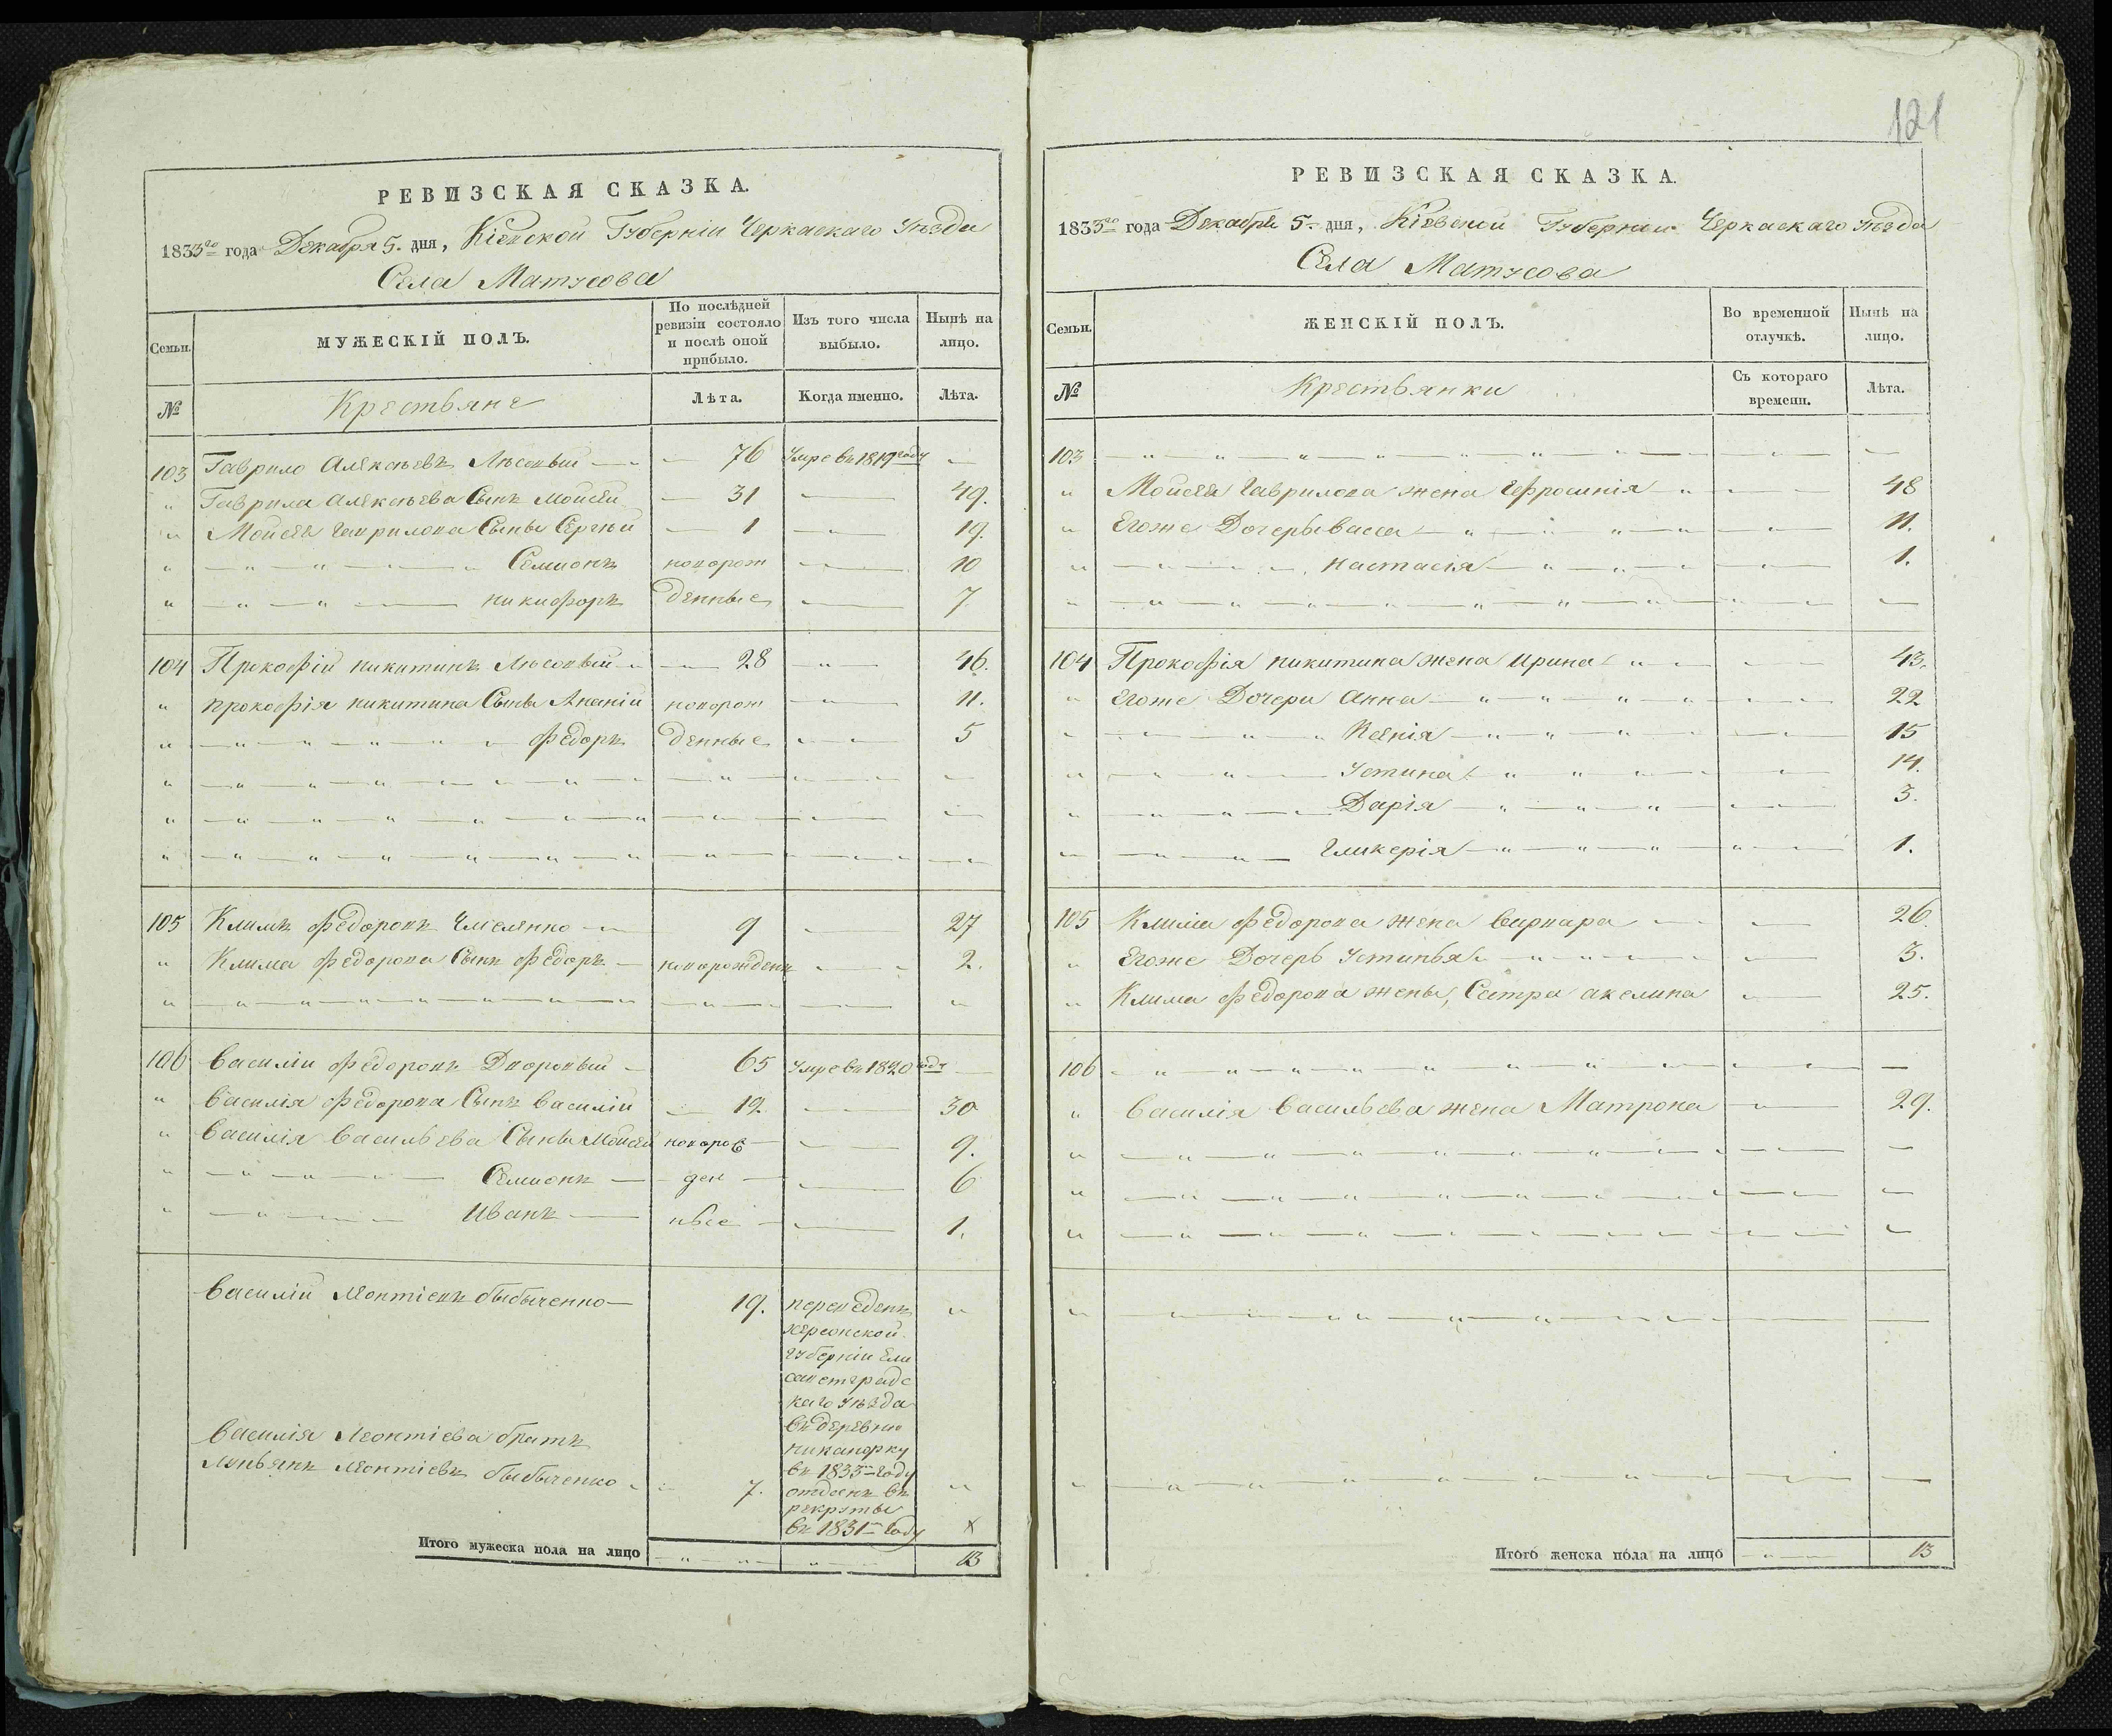 121
РЕВИЗСКАЯ СКАЗКА.
1833го года Декабря 5. дня, Кіевской Губерніи Черкаскаго Уѣзда
Села Матусова
Семьи.
МУЖЕСКІЙ ПОЛЪ.
По послѣдней ревизіи состояло и послѣ оной прибыло.
Изъ того числа выбыло.
Нынѣ на лицо.
№ Крестьяне Лѣта. Когда именно. Лѣта.
103 Гаврило Алексѣевъ Лѣсовый 76 Умре въ 1819 году —
" Гаврила Алексѣева Сынъ Мойсей 31 — 49.
" Мойсея Гаврилова Сыны Сергѣй 1 — 19.
" Семионъ новорож — 10
" Никифоръ денные — 7
104 Прокофій Никитинъ Лѣсовый 28 " 46.
" Прокофія Никитина Сыны Ананій новорож " 11.
" Федоръ денные — 5
105 Климъ Федоровъ Емеленко 9 — 27
" Клима Федорова Сынъ Федоръ новорожденъ — 2.
106 Василій Федоровъ Дворовый 65 Умре въ 1820 году —
" Василія Федорова Сынъ Василій 12. — 30
" Василія Васильева Сыны Мойсей новорож — 9.
" Семионъ ден — 6
" Иванъ ные — 1.
Василій Леонтіевъ Быбыченко 19. переведенъ "
Херсонской
Губерніи Ели
саветградс
каго Уѣзда
въ деревню
Никаноркy
въ 1833м году
Василія Леонтіева братъ
Лукьянъ Леонтіевъ Быбыченко 7. отданъ въ "
рекруты
въ 1831м году х
Итого мужеска пола на лицо " " 13
РЕВИЗСКАЯ СКАЗКА.
1833го года Декабря 5 дня, Кіевской Губерніи Черкаскаго Уѣзда
Села Матусова
Семьи.
ЖЕНСКІЙ ПОЛЪ.
Во временной отлучкѣ.
Нынѣ на лицо.
№ Крестьянки Съ котораго времени. Лѣта.
103 — — —
" Мойсея Гаврилова жена Ефросинія — 48
" Егоже Дочеры Васса — 11.
" Настасія — 1.
104 Прокофія Никитина жена Ирина — 43.
" Егоже Дочери Анна — 22
" Ксенія — 15
" Устина — 14.
" Дарія — 3.
" Гликерія — 1.
105 Клима Федорова жена Варвара — 26.
" Егоже Дочерь Устинья — 3.
" Клима Федорова жены, Сестра Акелина — 25.
106 — — —
" Василія Васильева жена Матрона — 29.
Итого женска пола на лицо " 13